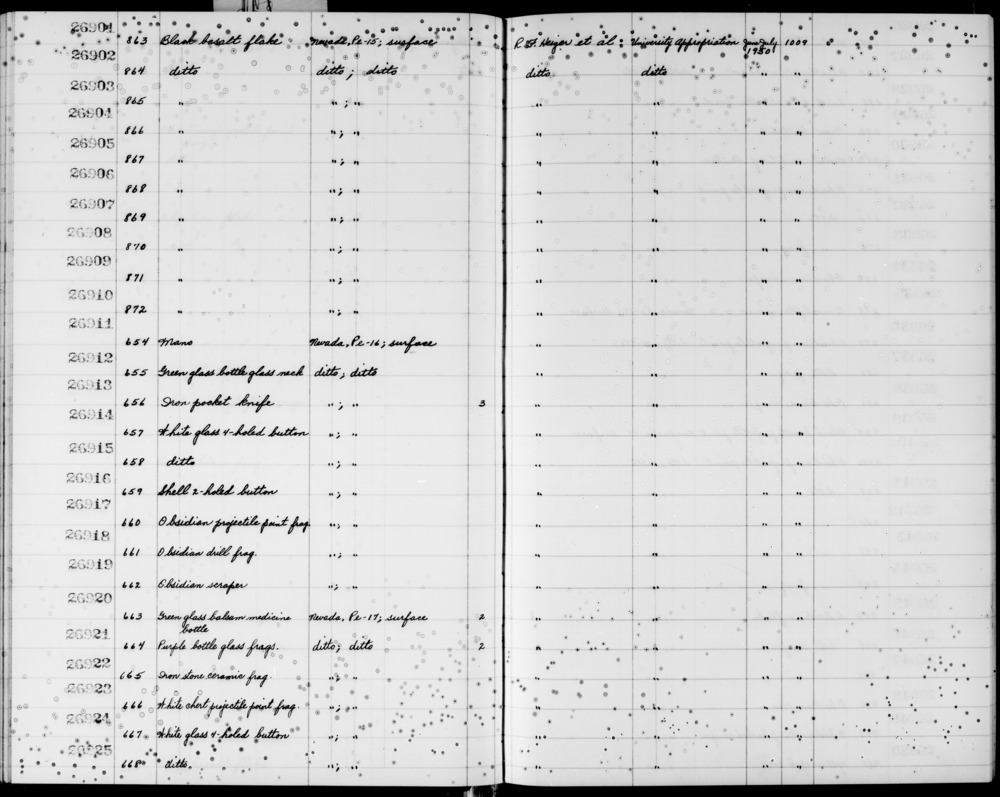 26901
863 Black basalt flake Nevada, Pe-15; surface R.F. Heizer et al. University Appropriation June-July 1009
1950
26902
864 ditto ditto ; ditto ditto ditto " "
26903
865 " " ; " " " " "
26904
866 " " ; " " " " "
26905
867 " " ; " " " " "
26906
868 " " ; " " " " "
26907
869 " " ; " " " " "
26908
870 " " ; " " " " "
26909
871 " " ; " " " " "
26910
872 " " ; " " " " "
26911
654 Mano Nevada, Pe-16; surface " " " "
26912
655 Green glass bottle glass neck ditto ; ditto " " " "
26913
656 Iron pocket knife " ; " 3 " " " "
26914
657 White glass 4-holed button " ; " " " " "
26915
658 ditto " ; " " " " "
26916
659 Shell 2-holed button " ; " " " " "
26917
660 Obsidian projectile point frag. " ; " " " " "
26918
661 Obsidian drill frag. " ; " " " " "
26919
662 Obsidian scraper " ; " " " " "
26920
663 Green glass balsam medicine Nevada, Pe-17; surface 2 " " " "
bottle
26921
664 Purple bottle glass frags. ditto; ditto 2 " " " "
26922
665 Iron stone ceramic frag. " ; " " " " "
26923
666 White chert projectile point frag. " ; " " " " "
26924
667 White glass 4-holed button " ; " " " " "
26925
668 ditto. " ; " " " " "